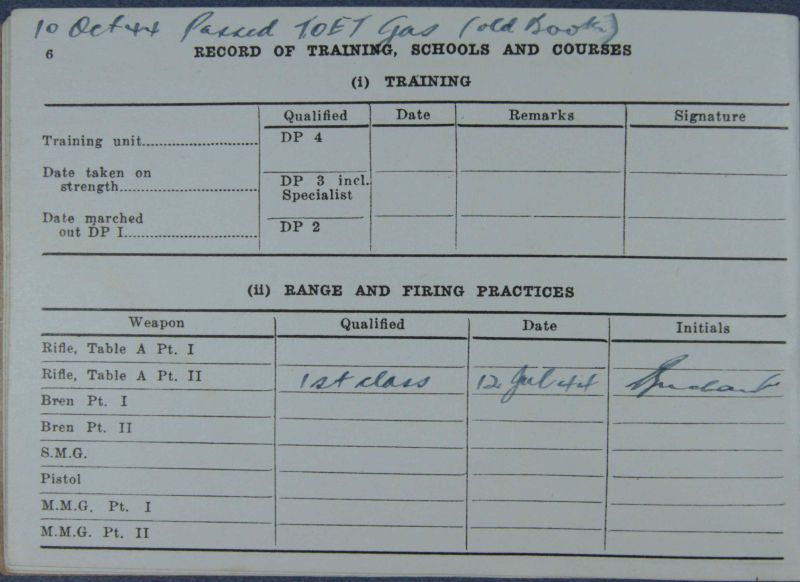 10 Oct 44 Passed TOET Gas (old Book)
6 RECORD OF TRAINING, SCHOOLS AND COURSES
(i) TRAINING
Qualified Date Remarks Signature
Training unit DP 4
Date taken on
strength DP 3 incl.
Specialist
Date marched
out DP I DP 2
(ii) RANGE AND FIRING PRACTICES
Weapon Qualified Date Initials
Rifle, Table A Pt. I
Rifle, Table A Pt. II 1st class 12 Jul 44
Bren Pt. I
Bren Pt. II
S.M.G.
Pistol
M.M.G. Pt. I
M.M.G. Pt. II